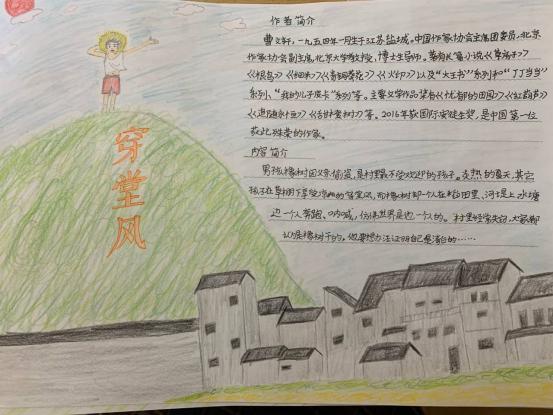 穿堂风
作者简介
曹文轩,一九五四年一月生于江苏盐城。中国作家协会主席团委员,北京
作家协会副主席,北京大学教授,博士生导师。著有长篇小说《草房子》
《根鸟》《细米》《青铜葵花》《火印》以及“大王书”系列和“丁丁当当”
系列、“我的儿子皮卡”系列等。主要文学作品集有《忧郁的田园》《红葫芦》
《追随永恒》《甜橙树》等。2016年获国际安徒生奖,是中国第一位
获此殊荣的作家。
内容简介
男孩橡树因父亲偷盗,是村里最不受欢迎的孩子。炎热的夏天,其它
孩子在草棚下享受凉爽的穿堂风,而橡树却一个人在稻田里、河堤上、水塘
边一个人奔跑、呐喊,仿佛世界是他一个人的。村里经常失窃,大家都
以为是橡树干的。他要想办法证明自己是清白的……